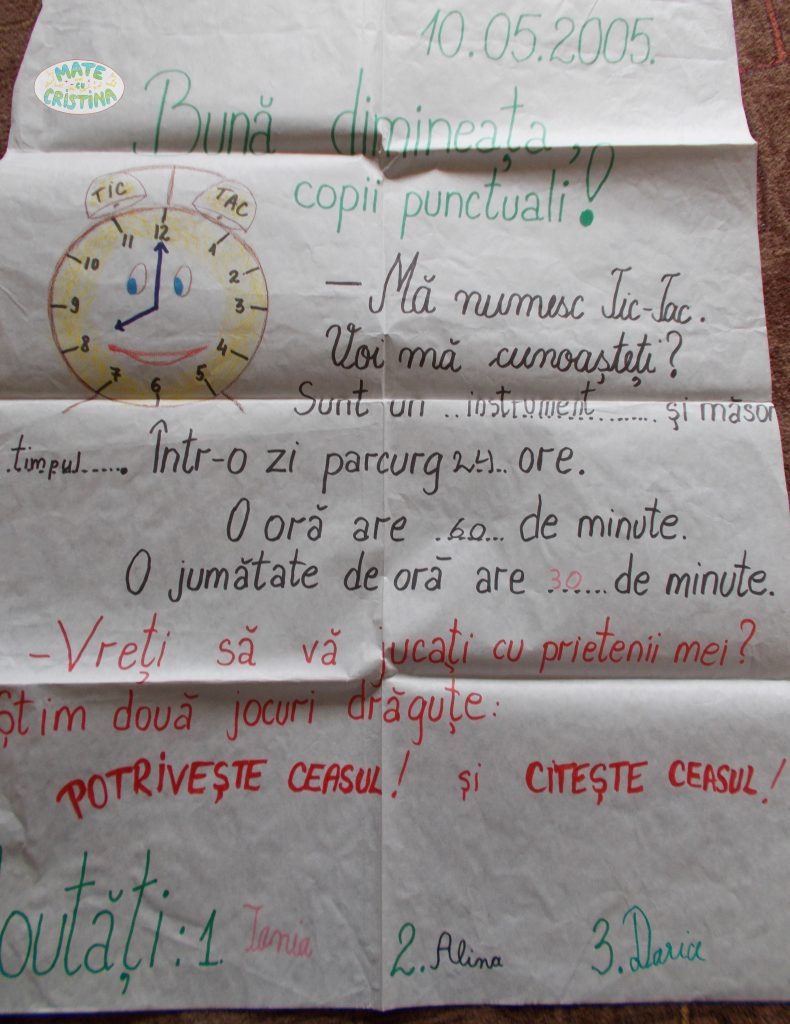 10.05.2005.
MATE
cu
CRISTINA
Bună dimineața,
copii punctuali!
TIC TAC
12
11 1
10 2
9 3
8 4
7 5
6
— Mă numesc Tic-Tac.
Voi mă cunoașteți?
Sunt un ..instrument....... și măsor
.timpul...... Într-o zi parcurg 24.. ore.
O oră are .60... de minute.
O jumătate de oră are 30...... de minute.
– Vreți să vă jucați cu prietenii mei?
Știm două jocuri drăguțe:
POTRIVEȘTE CEASUL! și CITEȘTE CEASUL!
outăți: 1. Tania 2. Alina 3. Daria